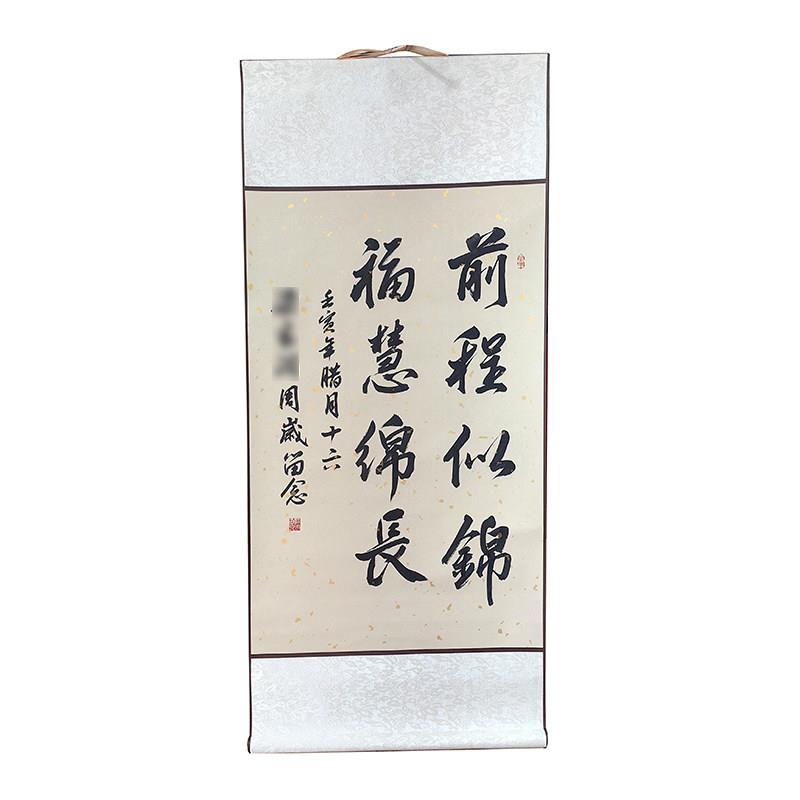 前程似錦
福慧綿長
壬寅年腊月十六
周歲留念